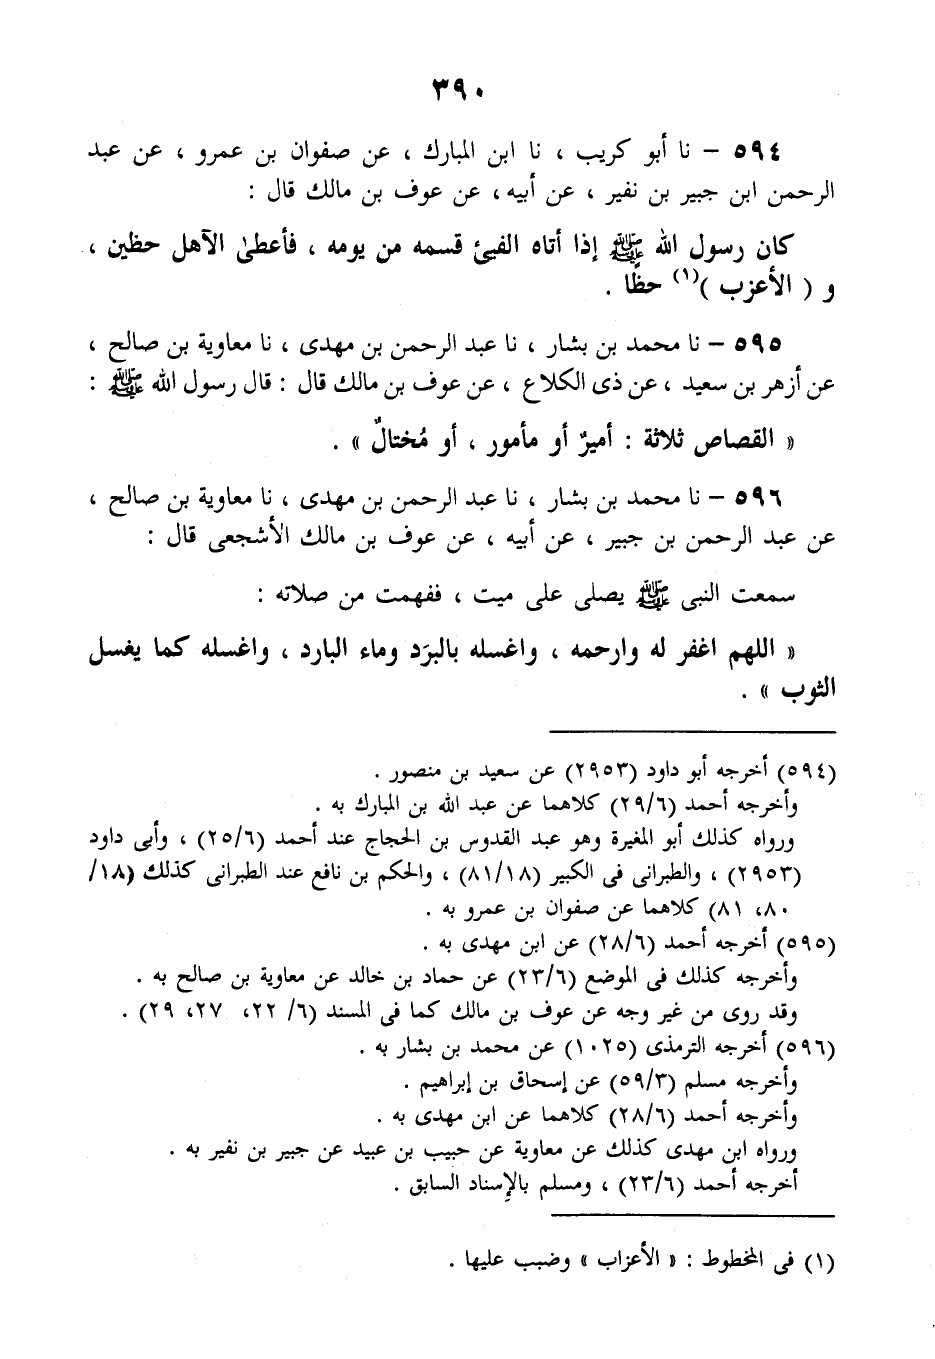 ٣٩٠
٥٩٤ – نا أبو كريب ، نا ابن المبارك ، عن صفوان بن عمرو ، عن عبد
الرحمن ابن جبير بن نفير ، عن أبيه ، عن عوف بن مالك قال :
كان رسول الله ﷺ إذا أتاه الفيئ قسمه من يومه ، فأعطىٰ الآهل حظين ،
و ( الأعزب )(١) حظًا .
٥٩٥ – نا محمد بن بشار ، نا عبد الرحمن بن مهدى ، نا معاوية بن صالح ،
عن أزهر بن سعيد ، عن ذى الكلاع ، عن عوف بن مالك قال : قال رسول الله ﷺ :
« القصاص ثلاثة : أميرٌ أو مأمور ، أو مُختالٌ » .
٥٩٦ – نا محمد بن بشار ، نا عبد الرحمن بن مهدى ، نا معاوية بن صالح ،
عن عبد الرحمن بن جبير ، عن أبيه ، عن عوف بن مالك الأشجعى قال :
سمعت النبى ﷺ يصلى على ميت ، ففهمت من صلاته :
« اللهم اغفر له وارحمه ، واغسله بالبرَد وماء البارد ، واغسله كما يغسل
الثوب » .
(٥٩٤) أخرجه أبو داود (٢٩٥٣) عن سعيد بن منصور .
وأخرجه أحمد (٢٩/٦) كلاهما عن عبد الله بن المبارك به .
ورواه كذلك أبو المغيرة وهو عبد القدوس بن الحجاج عند أحمد (٢٥/٦) ، وأبى داود
(٢٩٥٣) ، والطبرانى فى الكبير (٨١/١٨) ، والحكم بن نافع عند الطبرانى كذلك (١٨/
٨٠، ٨١) كلاهما عن صفوان بن عمرو به .
(٥٩٥) أخرجه أحمد (٢٨/٦) عن ابن مهدى به .
وأخرجه كذلك فى الموضع (٢٣/٦) عن حماد بن خالد عن معاوية بن صالح به .
وقد روى من غير وجه عن عوف بن مالك كما فى المسند (٦/ ٢٢، ٢٧، ٢٩) .
(٥٩٦) أخرجه الترمذى (١٠٢٥) عن محمد بن بشار به .
وأخرجه مسلم (٥٩/٣) عن إسحاق بن إبراهيم .
وأخرجه أحمد (٢٨/٦) كلاهما عن ابن مهدى به .
ورواه ابن مهدى كذلك عن معاوية عن حبيب بن عبيد عن جبير بن نفير به .
أخرجه أحمد (٢٣/٦) ، ومسلم بالإسناد السابق .
(١) فى المخطوط : « الأعزاب » وضبب عليها .